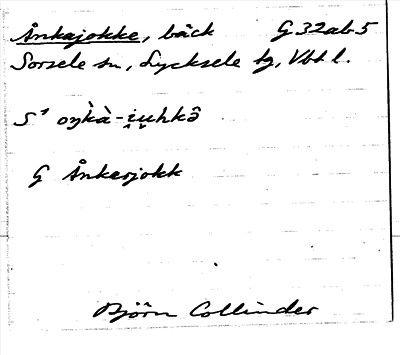 Ånkajokke, bäck G 32ab5
Sorsele sn, Lycksele tg, Vbt l.
S¹ oŋ̀kà-i̯u̯hkô
G Ånkerjokk
Björn Collinder